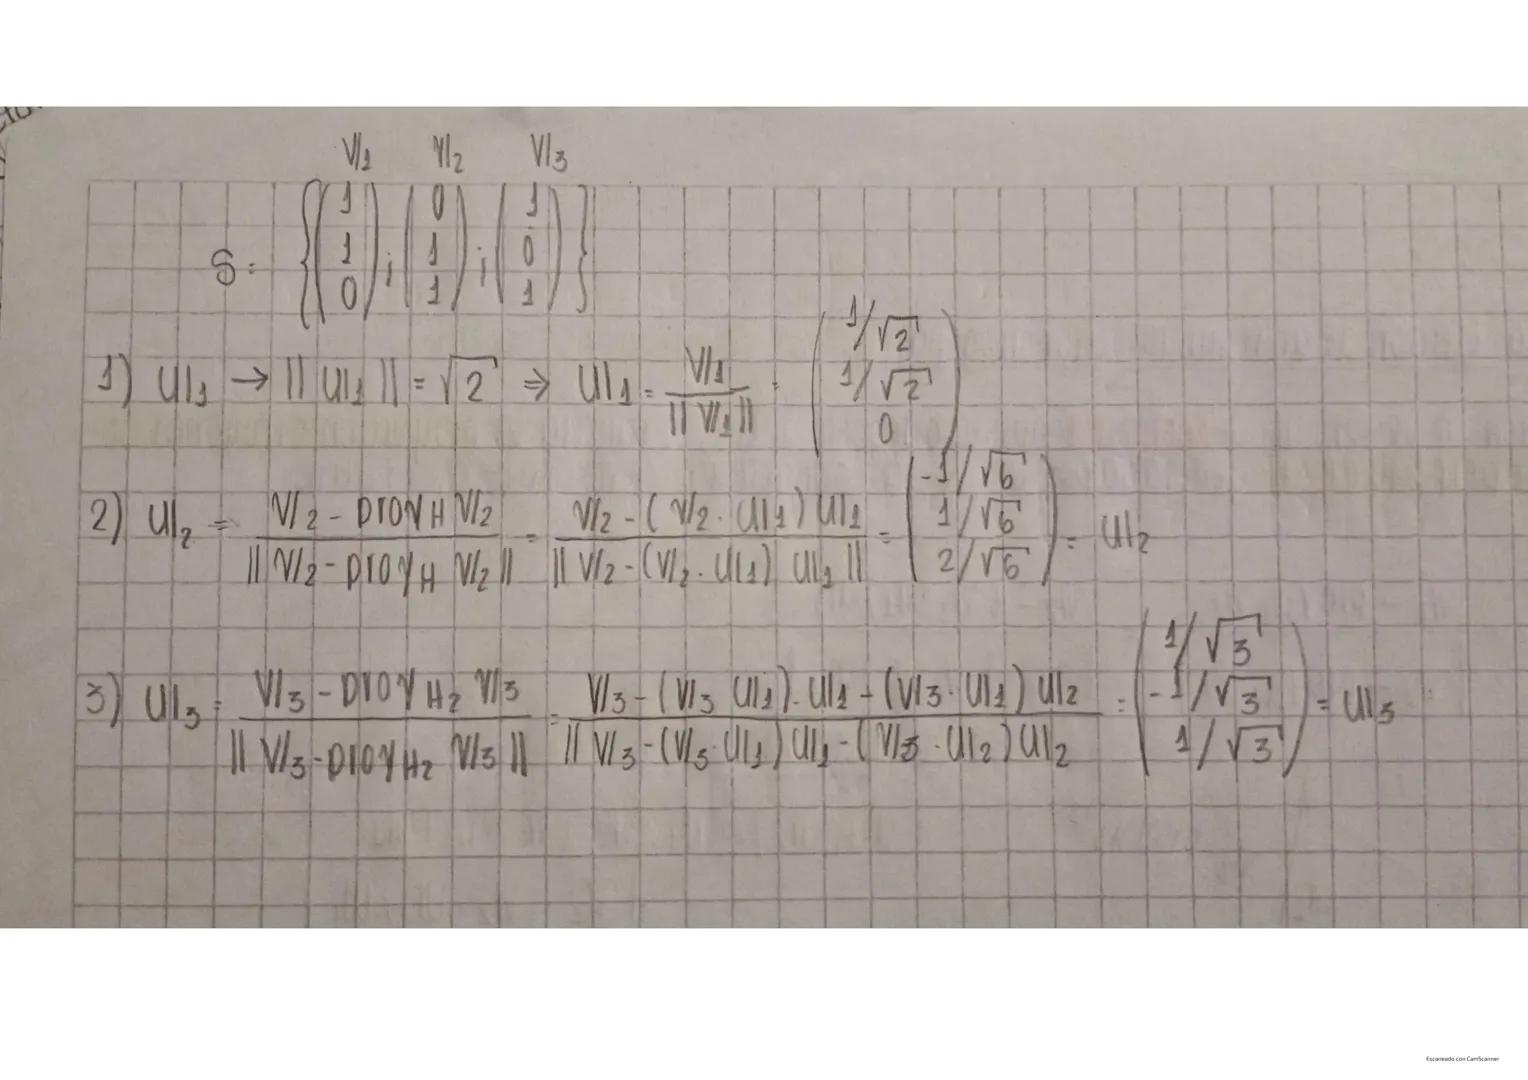 V1 V2 V3
S = { (1 1 0) ; (0 1 1) ; (1 0 1) }
1) U1 → || U1 || = √2 ⇒ U1 = V1 / || V1 || = (1/√2 1/√2 0)
2) U2 = V2 - proy H V2 / || V2 - proy H V2 || = V2 - (V2 · U1) U1 / || V2 - (V2 · U1) U1 || = (-1/√6 1/√6 2/√6) = U2
3) U3 = V3 - proy H2 V3 / || V3 - proy H2 V3 || = V3 - (V3 U1) · U1 - (V3 · U1) U2 / || V3 - (V3 · U1) U1 - (V3 · U2) U2 = (1/√3 -1/√3 1/√3) = U3
Escaneado con CamScanner